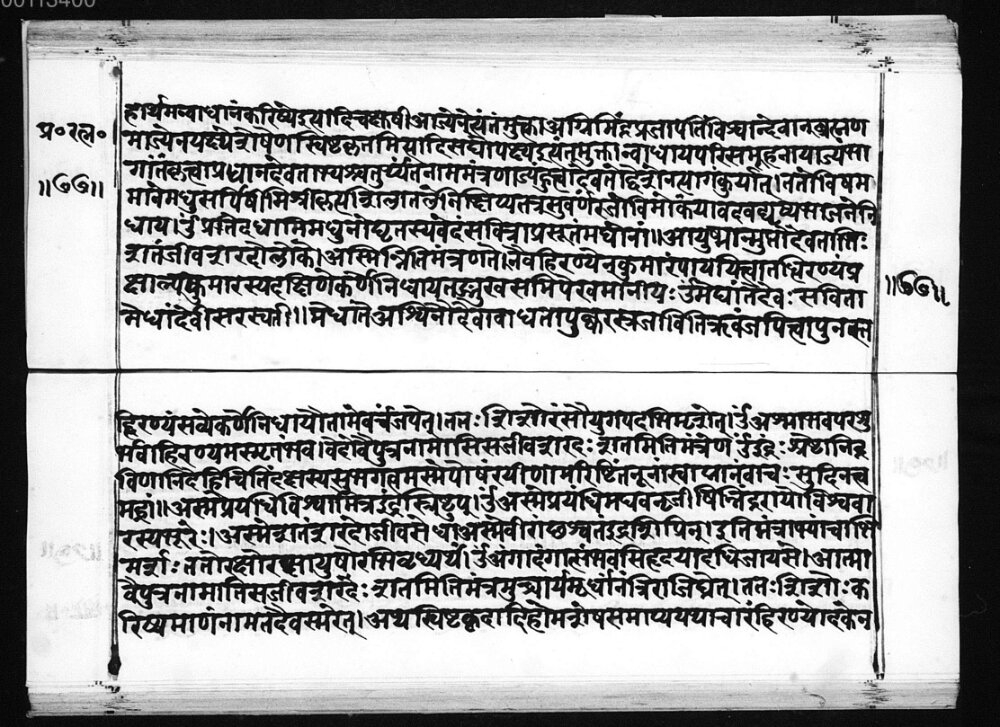 00113400
हार्थमन्वाधानंकरिष्येइत्यादिचक्षुषीआज्येनेत्यंतमुक्त्वा।अग्निमिंद्रंप्रजापतिंविश्वान्देवान्ब्रह्माण
प्र॰रत्न॰
माज्येनयक्ष्येशेषेणस्विष्टकृतमित्यादिसद्योयक्ष्यइत्यंतमुक्त्वा।न्वाधायपरिसमूहनाद्याज्यभा
॥७७॥
गांतंकृत्वाप्रधानदेवताभ्यश्चतुर्थ्यंतनाममंत्रेणाज्यंहुत्वादेवतोद्देशेनत्यागंकुर्यात्।ततोविषम
मात्रेमधुसर्पिषीमिश्रीकृत्यशिलातलेनिक्षिप्यतत्रसुवर्णंसजीविमांकंयावदवघृष्यभाजनेनि
धाय।ॐप्रतेददामिमधुनोघृतस्यवेदंसवित्राप्रसूतंमघोनां॥आयुष्मान्गुप्तोदेवताभिः
शतंजीवशरदोलोके।अस्मिन्नितिमंत्रेणते।नैवहिरण्येनकुमारंपाययित्वातद्धिरण्यंप्र
क्षाल्यकुमारस्यदक्षिणेकर्णेनिधायतन्मुखसमीपेस्वमानीय:ॐमेधांतेदेवःसविता
॥७७॥
मेधांदेवीसरस्वती॥मेधांतेअश्विनौदेवावाधत्तांपुष्करस्रजावितिऋचंजपित्वापुनस्त
द्धिरण्यंसव्येकर्णेनिधायैतामेवर्चंजपेत्।ततःशिशोरंसौयुगपदभिमृशेत्।ॐअश्माभवपरशु
र्भवहिरण्यमस्मृतंभव।वेदोवैपुत्रनामासिसजीवशरदःशतमितिमंत्रेण।ॐइंद्रःश्रेष्ठानिद्र
विणानिधेहिचित्तिंदक्षस्यसुभगत्वमस्मेपोषंरयीणामरिष्टिंतनूनांस्वाद्मानंवाचःसुदिनत्व
मह्नां॥अस्मेप्रयंधिविश्वामित्रइंद्रस्त्रिष्टुप्।ॐअस्मेप्रयंधिमघवन्नृजीषिन्निंद्ररायोविश्ववा
रस्यभूरेः।अस्मेशतंशरदोजीवसेधाअस्मेवीरांछश्वतइंद्रशिप्रिन्।इतिमंत्राभ्यांचाभि
मर्शः।ततोरक्षोरक्षायुषोरभिवृध्यर्थं।ॐअंगादंगात्संभवसिहृदयादधिजायसे।आत्मा
वैपुत्रनामासिसजीवशरदःशतमितिमंत्रमुच्चार्यमूर्धानंत्रिराजिघ्रेत्।ततःशिशोःक
रिष्यमाणंनामतदैवस्मरेत्।अथस्विष्टकृदादिहोमशेषंसमाप्ययथाचारंहिरण्योदकेन